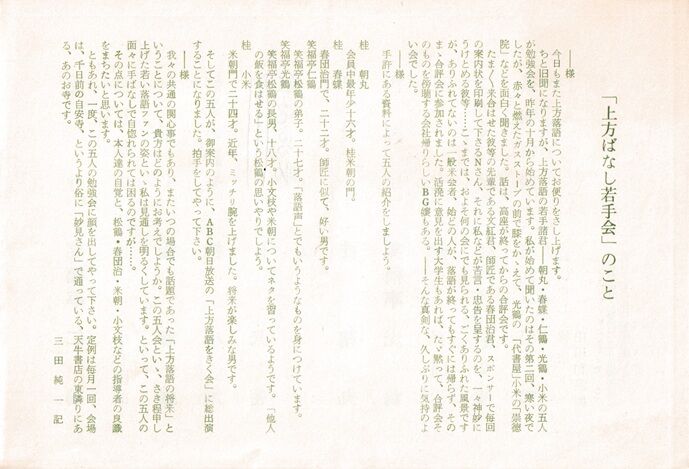 「上方ばなし若手会」のこと
――様
今日もまた上方落語についてお便りをさし上げます。
ちと旧聞になりますが、上方落語の若手諸君――朝丸・春蝶・仁鶴・光鶴・小米の五人
が勉強会を、昨年の十月から始めています。私が始めて聞いたのはその第二回、寒い夜で
したが、赤々と燃えたガスストーブの前で膝をかゝえて、光鶴の「代書屋」小米の「崇徳
院」などを面白く聞きました。話は、高座が終ってからの合評会です。
たま〳〵来合はせた彼等の先輩である文紅君、師匠である春団治君、スポンサーで毎回
の案内状を印刷して下さるNさん、それに私などが苦言・忠告を呈するのを、一々神妙に
うけとめる彼等……こゝまでは、およそ何の会にでも見られる、ごくありふれた風景です
が、ありふれてないのは一般来会者、殆どの人が、落語が終ってもすぐには帰らず、その
まゝ合評会に参加されました。活溌に意見を出す大学生もあれば、たゞ黙って、合評会そ
のものを傍聴する会社帰りらしいBG嬢もある。――そんな真剣な、久しぶりに気持のよ
い会でした。
手許にある資料によって五人の紹介をしましょう。
桂　朝丸
会員中最年少十六才。桂米朝の門。
桂　春蝶
春団治門で、二十二才。師匠に似て、好い男です。
笑福亭仁鶴
笑福亭松鶴の弟子。二十七才。「落語声」とでもいうようなものを身につけています。
笑福亭光鶴
笑福亭松鶴の長男、十八才。小文枝や米朝についてネタを習っているようです。「他人
の飯を食はせる」という松鶴の思いやりでしょう。
桂　小米
米朝門で二十四才。近年、ミッチリ腕を上げました。将来が楽しみな男です。
そしてこの五人が、御案内のように、ABC朝日放送の「上方落語をきく会」に総出演
することになりました。拍手をしてやって下さい。
――様
我々の共通の関心事でもあり、またいつの場合でも話題であった「上方落語の将来」と
いうことについて、貴方はどのようにお考えでしょうか。この五人会といゝ、さき程申し
上げた若い落語ファンの姿といゝ私は見通しを明るくしています。といって、この五人の
面々に手ばなしで自惚れられては困るのですが……。
その点については、本人達の自覚と、松鶴・春団治・米朝・小文枝などの指導者の良識
をまちたいと思います。
ともあれ、一度、この五人の勉強会に顔を出してやって下さい。定例は毎月一回、会場
は、千日前の自安寺、というより俗に「妙見さん」で通っている、天牛書店の東隣りにあ
る、あのお寺です。
三田純一記